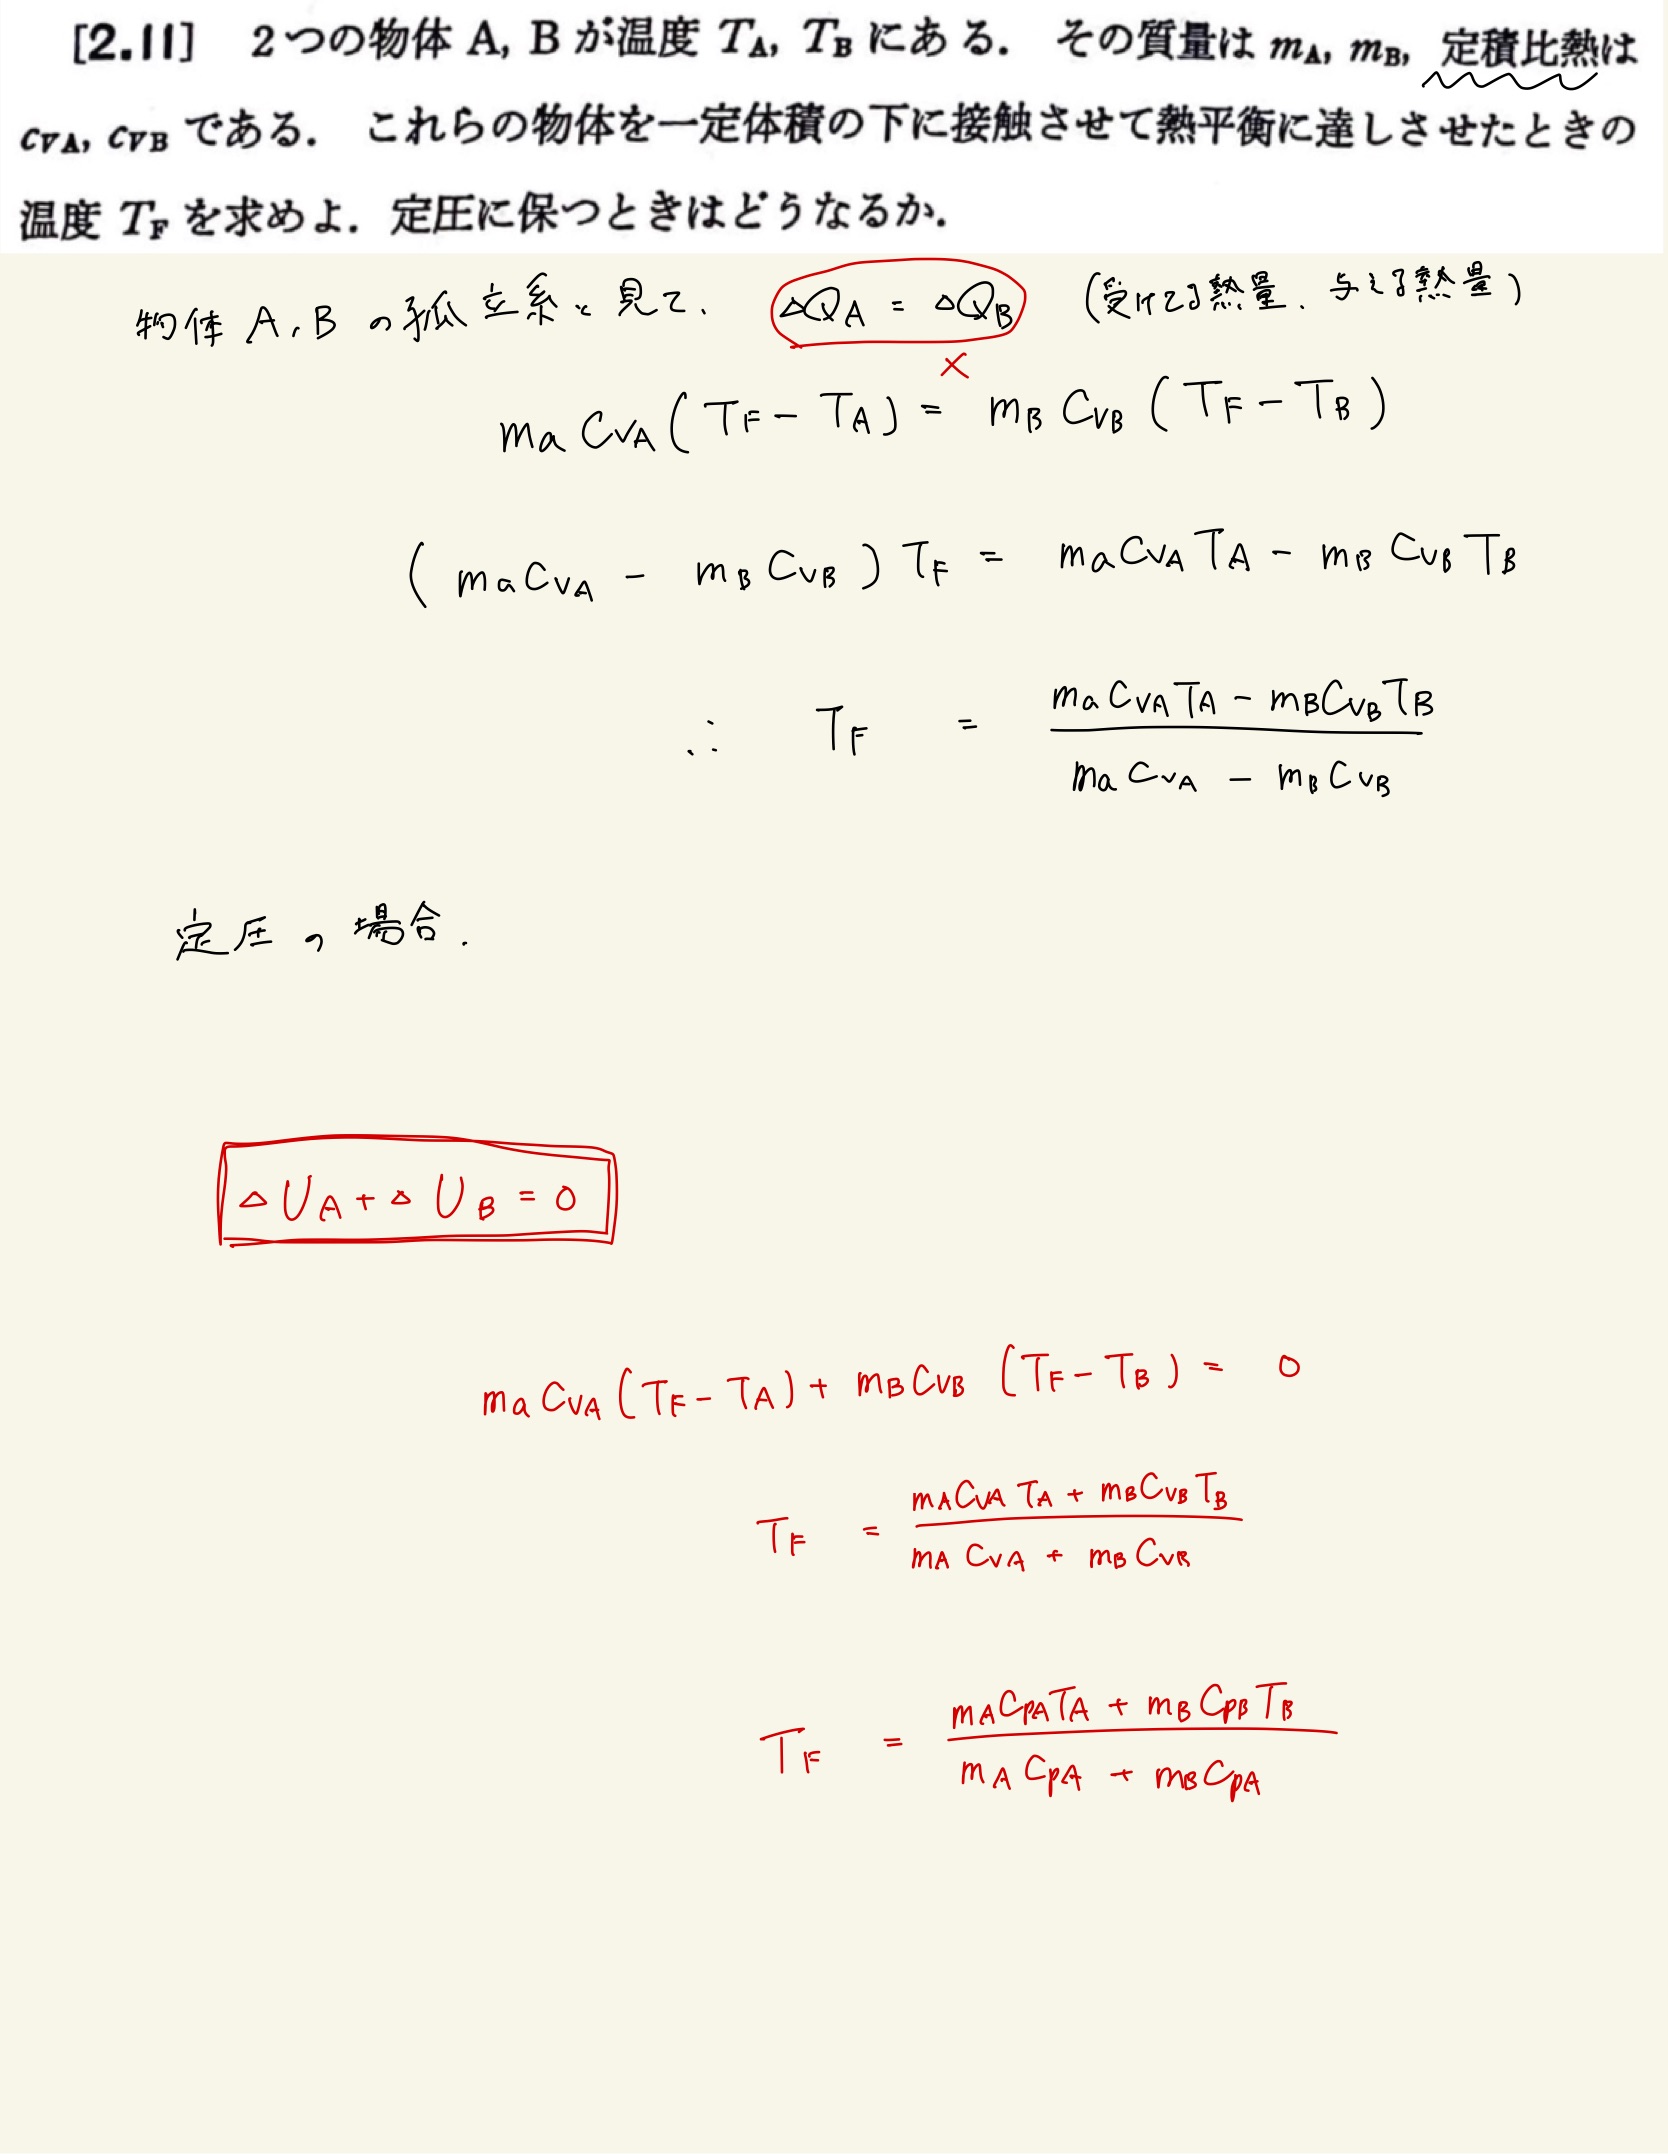 [2.11] 2つの物体 A, B が温度 T_A, T_B にある. その質量は m_A, m_B, 定積比熱は
c_VA, c_VB である. これらの物体を一定体積の下に接触させて熱平衡に達しさせたときの
温度 T_F を求めよ. 定圧に保つときはどうなるか.
物体 A, B の孤立系と見て、 △Q_A = △Q_B (受けてる熱量、与える熱量)
×
m_a C_VA (T_F - T_A) = m_B C_VB (T_F - T_B)
(m_a C_VA - m_B C_VB) T_F = m_a C_VA T_A - m_B C_VB T_B
∴ T_F = \frac{m_a C_VA T_A - m_B C_VB T_B}{m_a C_VA - m_B C_VB}
定圧の場合.
△U_A + △U_B = 0
m_a C_VA (T_F - T_A) + m_B C_VB (T_F - T_B) = 0
T_F = \frac{m_A C_VA T_A + m_B C_VB T_B}{m_A C_VA + m_B C_VB}
T_F = \frac{m_A C_PA T_A + m_B C_PB T_B}{m_A C_PA + m_B C_PA}